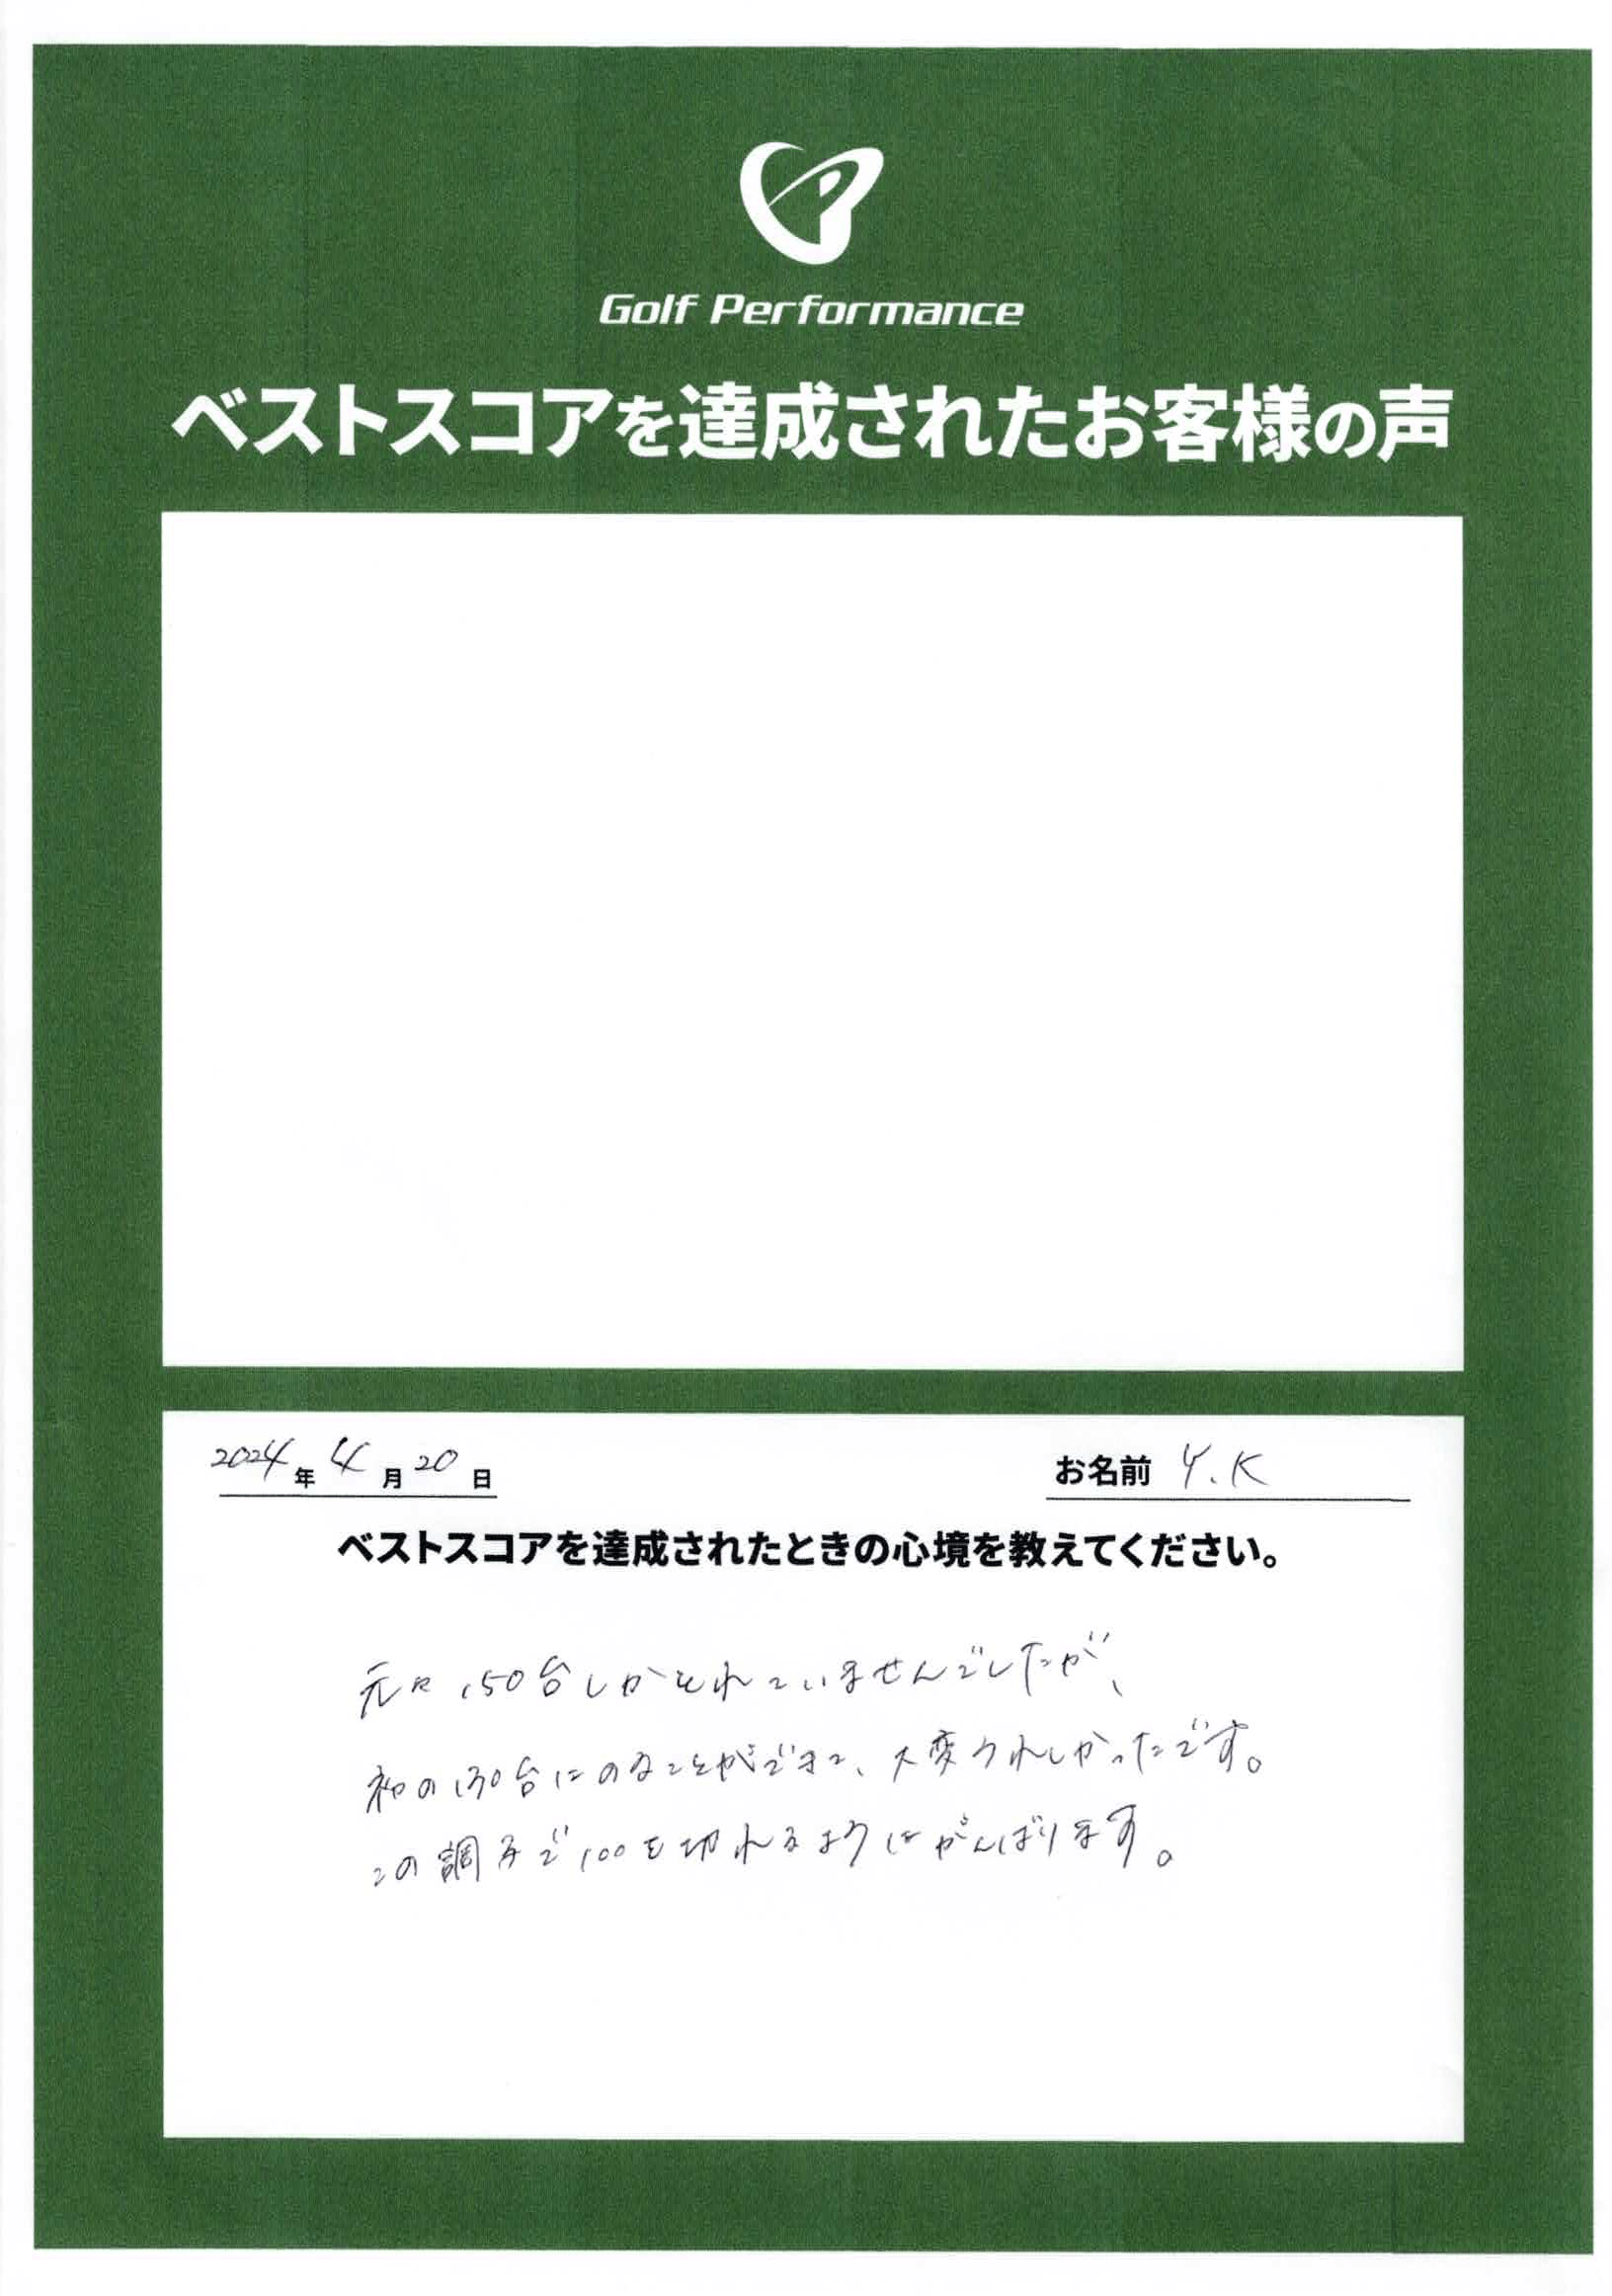 Golf Performance
ベストスコアを達成されたお客様の声
2024年 4月 20日
お名前 Y.K
ベストスコアを達成されたときの心境を教えてください。
元々150台しかとれていませんでしたが、
初の130台にのることができて、大変うれしかったです。
この調子で100を切れるようにがんばります。